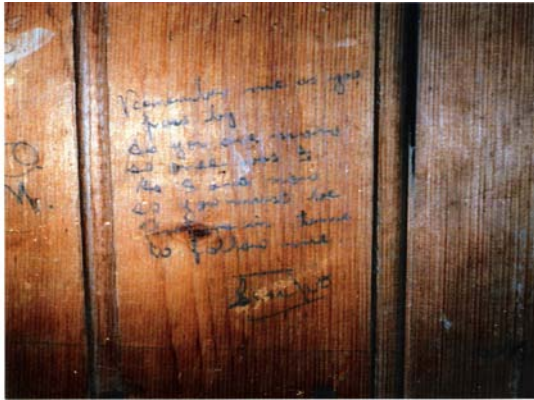 Remember me as you
pass by
As you are now
so once was I
As I am now
so you must be
in time
to follow me
O
M.